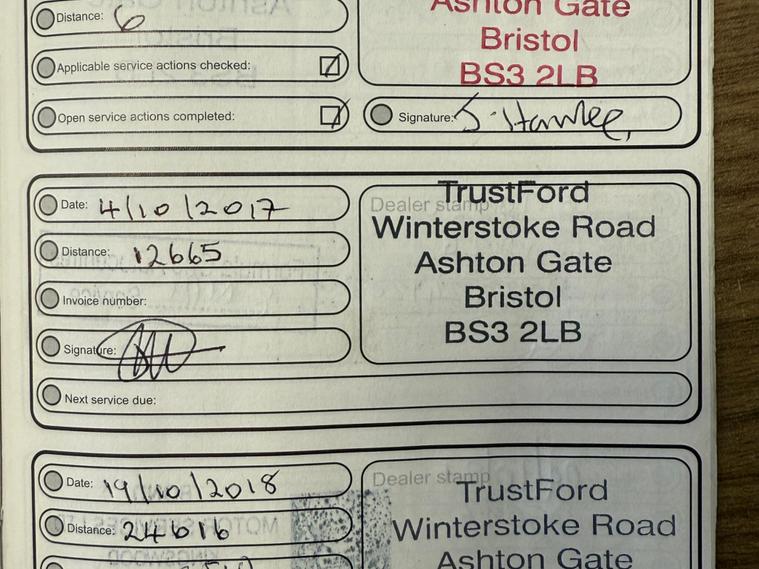 Distance: 6
Ashton Gate
Bristol
BS3 2LB
Applicable service actions checked:
Open service actions completed:
Signature:
Date: 4/10/2017
Distance: 12665
Invoice number:
Signature:
Next service due:
Dealer stamp
TrustFord
Winterstoke Road
Ashton Gate
Bristol
BS3 2LB
Date: 19/10/2018
Distance: 24616
Dealer stamp
TrustFord
Winterstoke Road
Ashton Gate